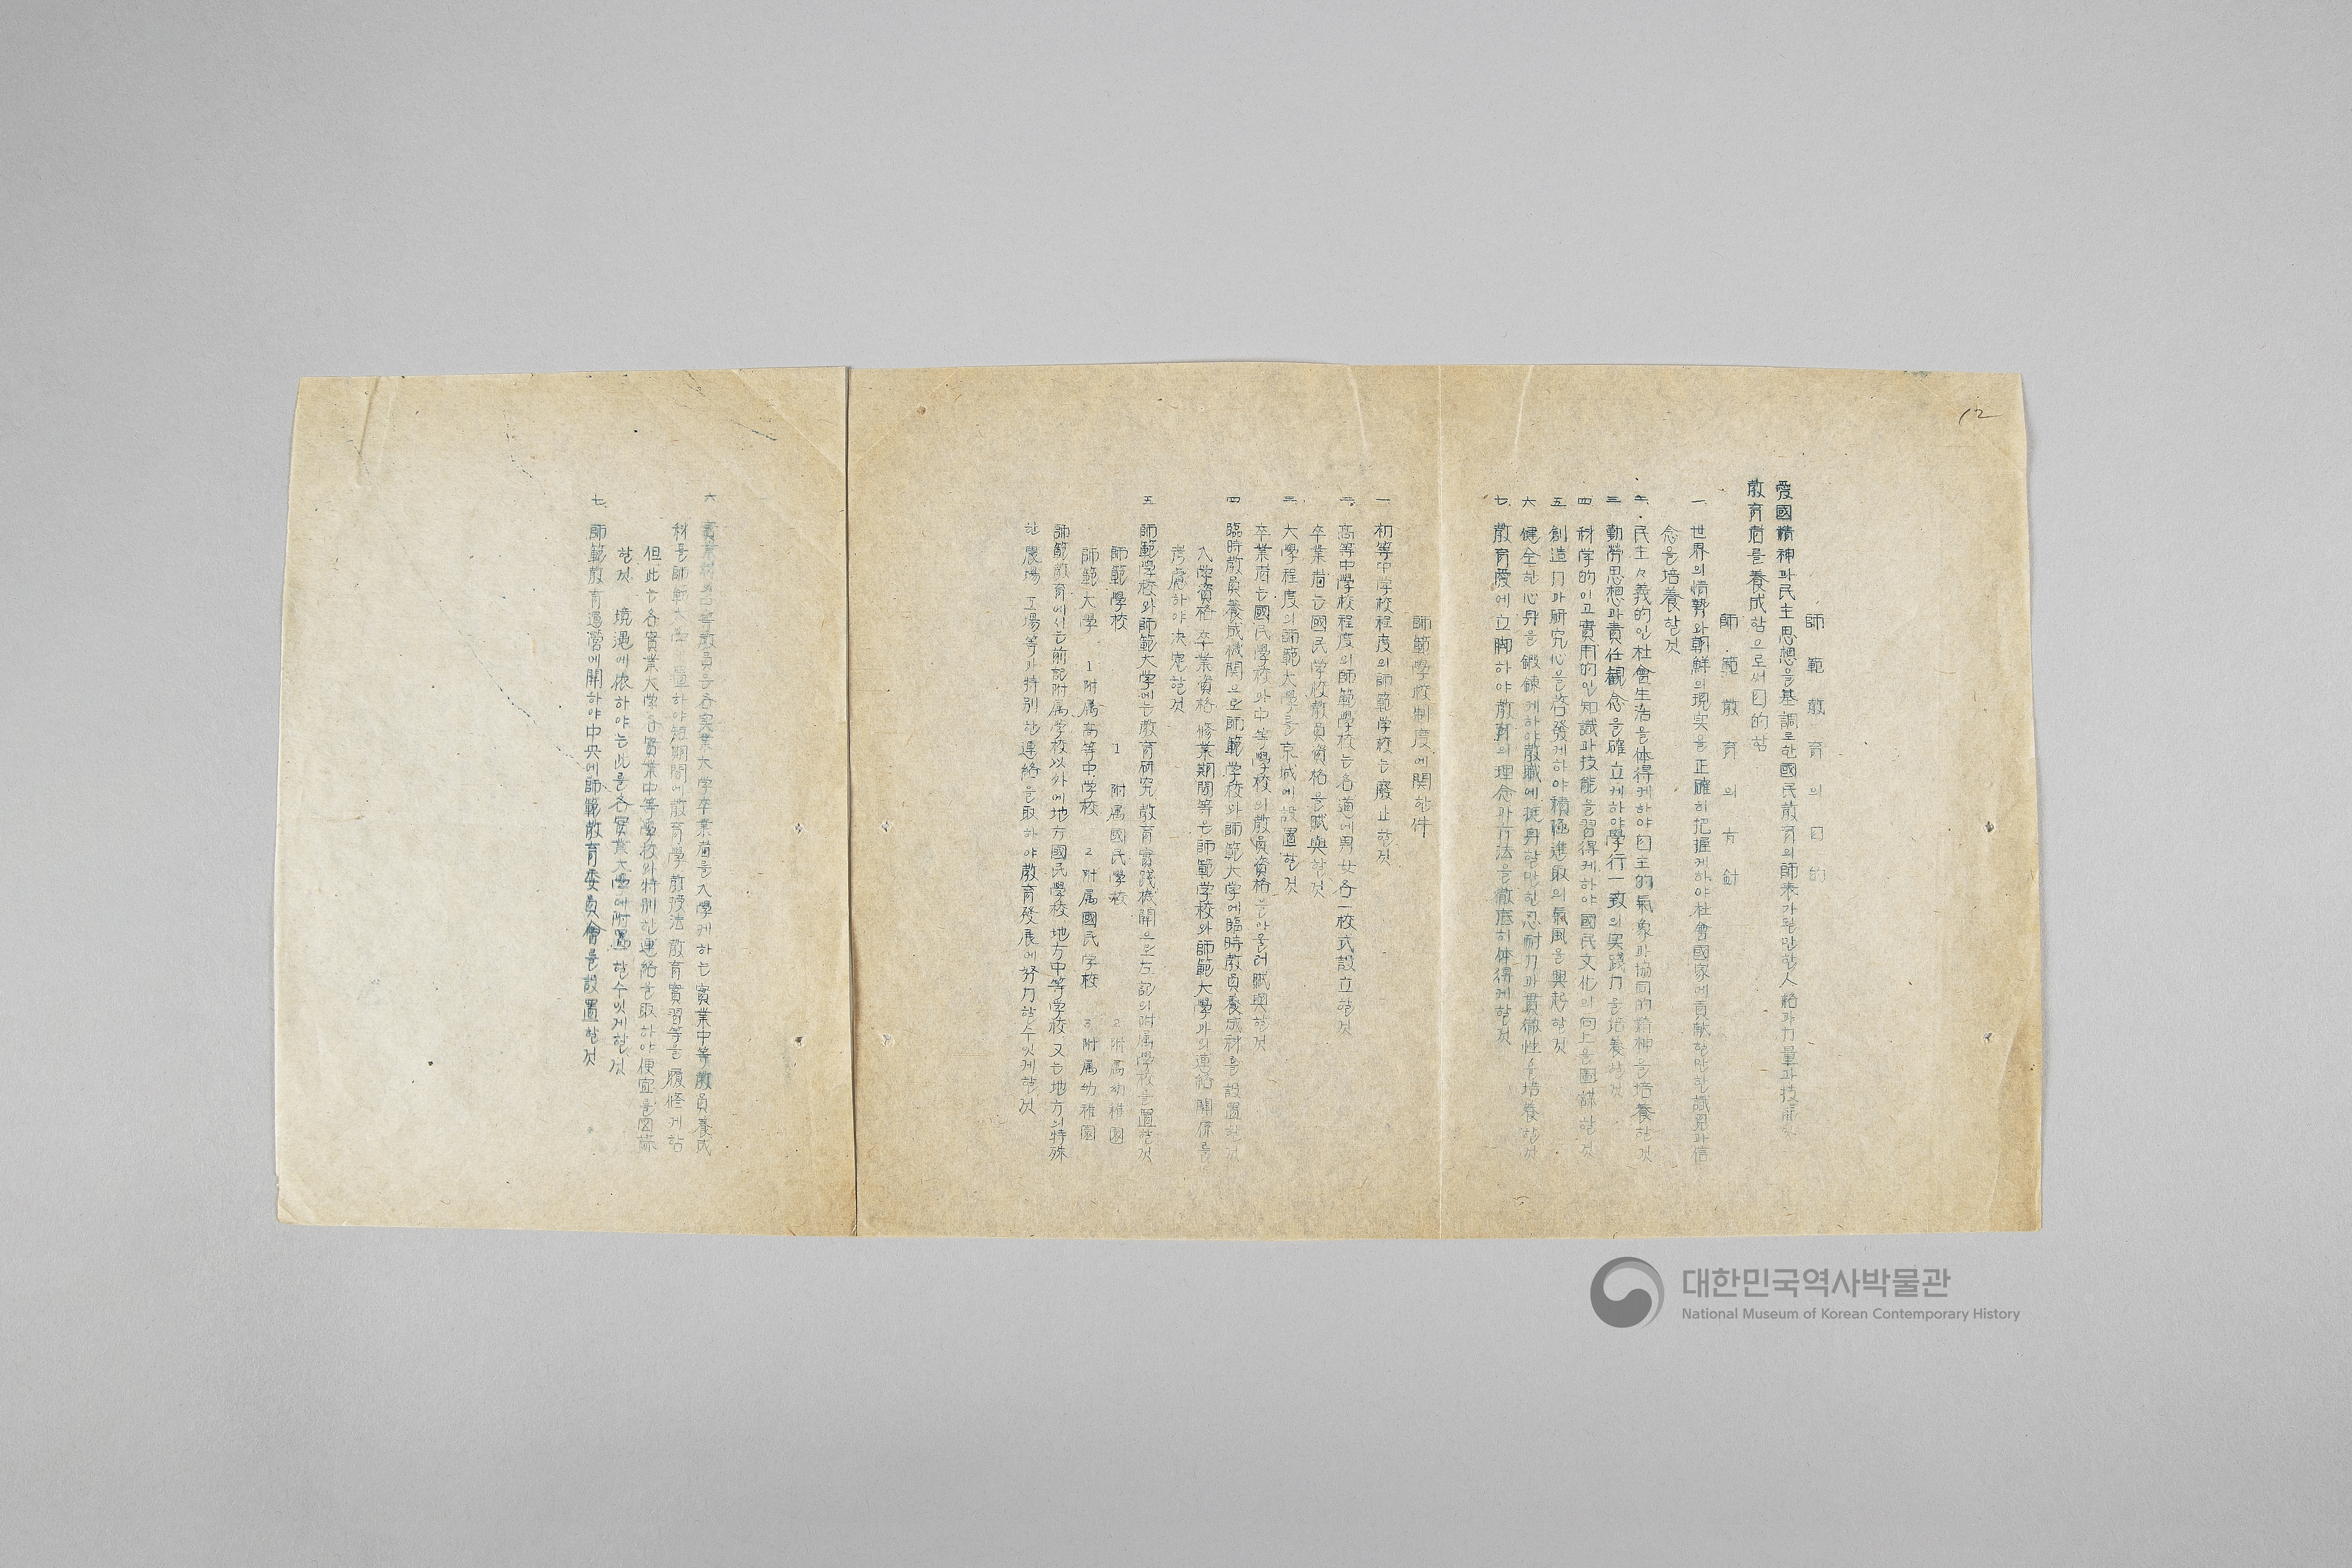 12
師範敎育의目的
愛國精神과民主思想을基調로한國民敎育의師表가될만한人格과力量과技能
敎育者를養成함으로써目的함
師範敎育의方針
一 世界의情勢와朝鮮의現実을正確히把握케하야社會國家에貢献할만한識見과信
念을培養할것
二. 民主々義的인社會生活을体得케하야自主的氣象과協同的精神을培養할것
三 勤勞思想과責任観念을確立케하야學行一致의実踐力을培養할것
四 科学的이고實用的인知識과技能을習得케하야國民文化의向上을圖謀할것
五 創造力과研究心을啓發케하야積極進取의氣風을興起할것
六 健全한心身을鍛錬케하야敎職에挺身할만한忍耐力과貫徹性을培養할것
七. 敎育愛에立脚하야敎育의理念과方法을徹底히体得케할것
師範學校制度에関한件
一 初等中学校程度의師範学校는廢止할것
二. 高等中學校程度의師範學校는各道에男女各一校式設立할것
卒業者는國民学校敎員資格을賦與할것
三 大學程度의師範大學을京城에設置할것
卒業者는國民學校와中等學校의敎員資格을아울러賦與할것
四 臨時敎員養成機関으로師範学校와師範大学에臨時敎員養成科를設置할것
入学資格 卒業資格 修業期間等은師範学校와師範大學과의連絡関係를
考慮하야決定할것
五 師範學校와師範大学에는敎育研究 敎育實践機関으로左記의附属學校를置할것
師範學校 1 附属國民學校 2 附属幼稚園
師範大学 1 附属高等中学校 2 附属國民学校 3 附属幼稚園
師範敎育에서는前記附属学校以外에地方國民學校 地方中等学校 又는地方의特殊
한農場 工場等과特別한連絡을取하야敎育發展에努力할수잇게할것
六 實業科의中等敎員은各実業大学卒業者를入學케하는實業中等敎員養成
科를師範大學에置하야短期間에敎育學 敎授法 敎育實習等을履修케함
但此는各實業大學各實業中等學校와特別한連絡을取하야便宜을図謀
할것 境遇에依하야는此를各實業大學에附置할수잇게할것
七. 師範敎育運營에関하야中央에師範敎育委員會를設置할것
대한민국역사박물관
National Museum of Korean Contemporary History